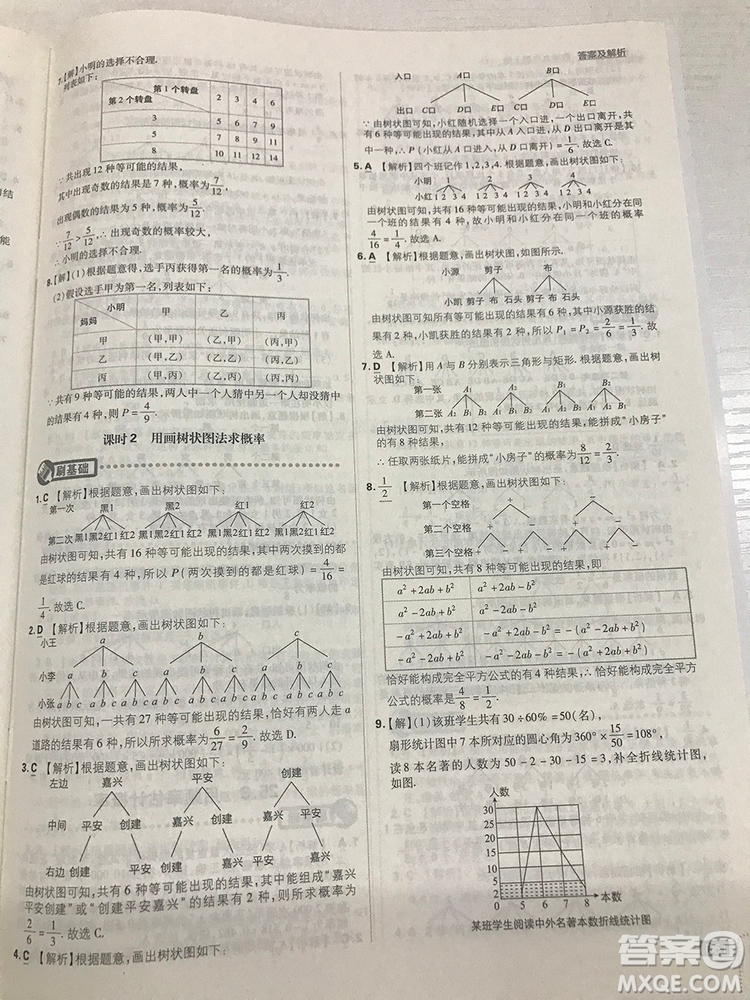 答案及解析
7.【解】小明的选择不合理.
列表如下:
第1个转盘
第2个转盘 2 4 6
3 5 7 9
5 7 9 11
7 9 11 13
8 10 12 14
∵共出现12种等可能的结果,
其中出现奇数的结果为7种,概率为7/12,
出现偶数的结果为5种,概率为5/12,
∵7/12>5/12,∴出现奇数的概率较大,
∴小明的选择不合理.
8.【解】(1)根据题意得,选手丙获得第一名的概率为1/3.
(2)假设选手甲为第一名,列表如下:
小明
妈妈 甲 乙 丙
甲 (甲,甲) (乙,甲) (丙,甲)
乙 (甲,乙) (乙,乙) (丙,乙)
丙 (甲,丙) (乙,丙) (丙,丙)
∵共有9种等可能的结果,两人中一个人猜中另一个人却没有猜中的结果有4种,则P=4/9.
课时2 用画树状图法求概率
刷基础
1.C 【解析】根据题意,画出树状图如下:
第一次 黑1 黑2 红1 红2
第二次 黑1黑2红1红2 黑1黑2红1红2 黑1黑2红1红2 黑1黑2红1红2
由树状图可知,共有16种等可能出现的结果,其中两次摸到的都
是红球的结果有4种,所以P(两次摸到的都是红球)=4/16=
1/4.故选C.
2.D 【解析】根据题意,画出树状图如下:
小王 a b c
小李 a b c a b c a b c
小张 abc abc abc abc abc abc abc abc abc
由树状图可知,一共有27种等可能出现的结果,恰好有两人走a
道路的结果有6种,所以所求概率为6/27=2/9.故选D.
3.C 【解析】根据题意,画出树状图如下:
左边 嘉兴 平安 创建
中间 平安 创建 嘉兴 创建 嘉兴 平安
右边 创建 平安 创建 嘉兴 平安 嘉兴
由树状图可知,共有6种等可能出现的结果,其中能组成“嘉兴
平安创建”或“创建平安嘉兴”的结果有2种,则所求概率为
2/6=1/3.故选C.
4.C 【解析】根据题意,画出树状图如下:
入口 A口 B口
出口 C口 D口 E口 C口 D口 E口
∵由树状图可知,小红随机选择一个入口进入,一个出口离开,共
有6种等可能出现的结果,其中从A入口进,从D出口离开的只有
其中一种,∴P(小红从A入口进,从D出口离开)=1/6.故选C.
5.A 【解析】四个班记作1,2,3,4.根据题意,画出树状图如下:
小明 1 2 3 4
小红 1 2 3 4 1 2 3 4 1 2 3 4 1 2 3 4
由树状图可知,共有16种等可能出现的结果,小明和小红分在同
一个班的结果有4种,故小明和小红分在同一个班的概率
4/16=1/4.故选A.
6.A 【解析】根据题意,画出树状图,如图所示.
小源 剪子 布
小凯 剪子 布 石头 剪子 布 石头
由树状图可知所有等可能出现的结果有6种,其中小源获胜的结果
有2种,小凯获胜的结果有2种,所以P₁=P₂=2/6=1/3.故
选A.
7.D 【解析】用A与B分别表示三角形与矩形.根据题意,画出树
状图如下:
第一张 A₁ A₂ B₁ B₂
第二张 A₂ B₁ B₂ A₁ B₁ B₂ A₁ A₂ B₂ A₁ A₂ B₁
由树状图可知,共有12种等可能出现的结果,能拼成“小房子”
的有8种结果,
∴任取两张纸片,能拼成“小房子”的概率为8/12=2/3.
故选D.
8.1/2 【解析】根据题意,画出树状图如下:
第一个空格 + -
第二个空格 + - + -
第三个空格 + - + - + - + -
由树状图可知,共有8种等可能出现的结果,即
a²+2ab+b² a²+2ab-b²
a²-2ab+b² a²-2ab-b²
-a²+2ab+b² -a²+2ab-b²=-(a²-2ab+b²)
-a²-2ab+b² -a²-2ab-b²=-(a²+2ab+b²)
恰好能构成完全平方公式的有4种结果,∴恰好能构成完全平方
公式的概率为4/8=1/2.
9.【解】(1)该班学生共有30÷60%=50(名),
扇形统计图中7本所对应的圆心角为360°×15/50=108°,
读8本名著的人数为50-2-30-15=3.补全折线统计图,
如图.
人数
30
25
20
15
10
5
2
0 5 6 7 8 本数
某班学生阅读中外名著本数折线统计图
答案圈
MXQE.COM